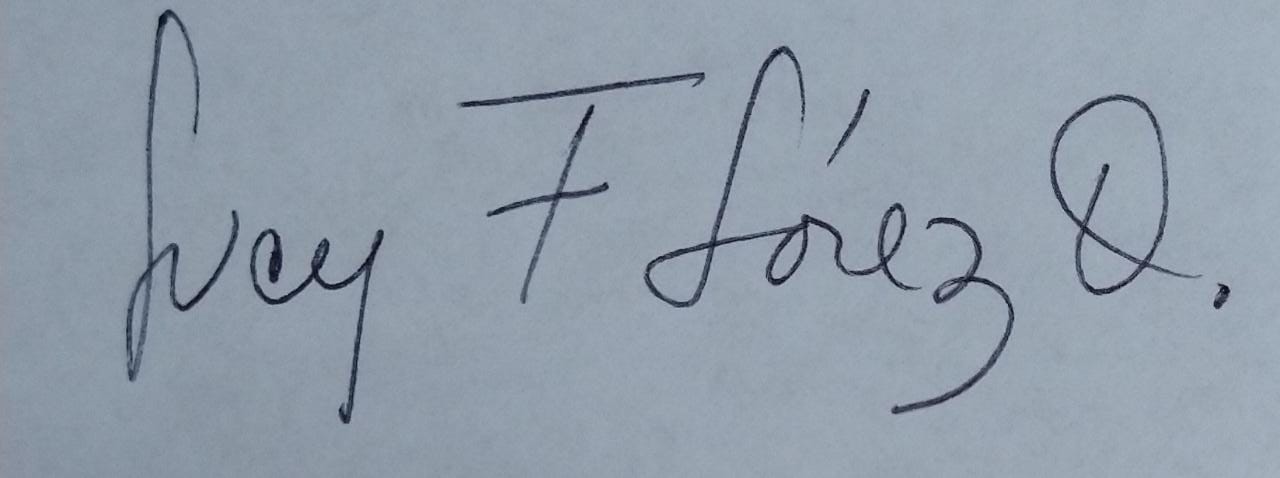 Lucy Flórez Q.